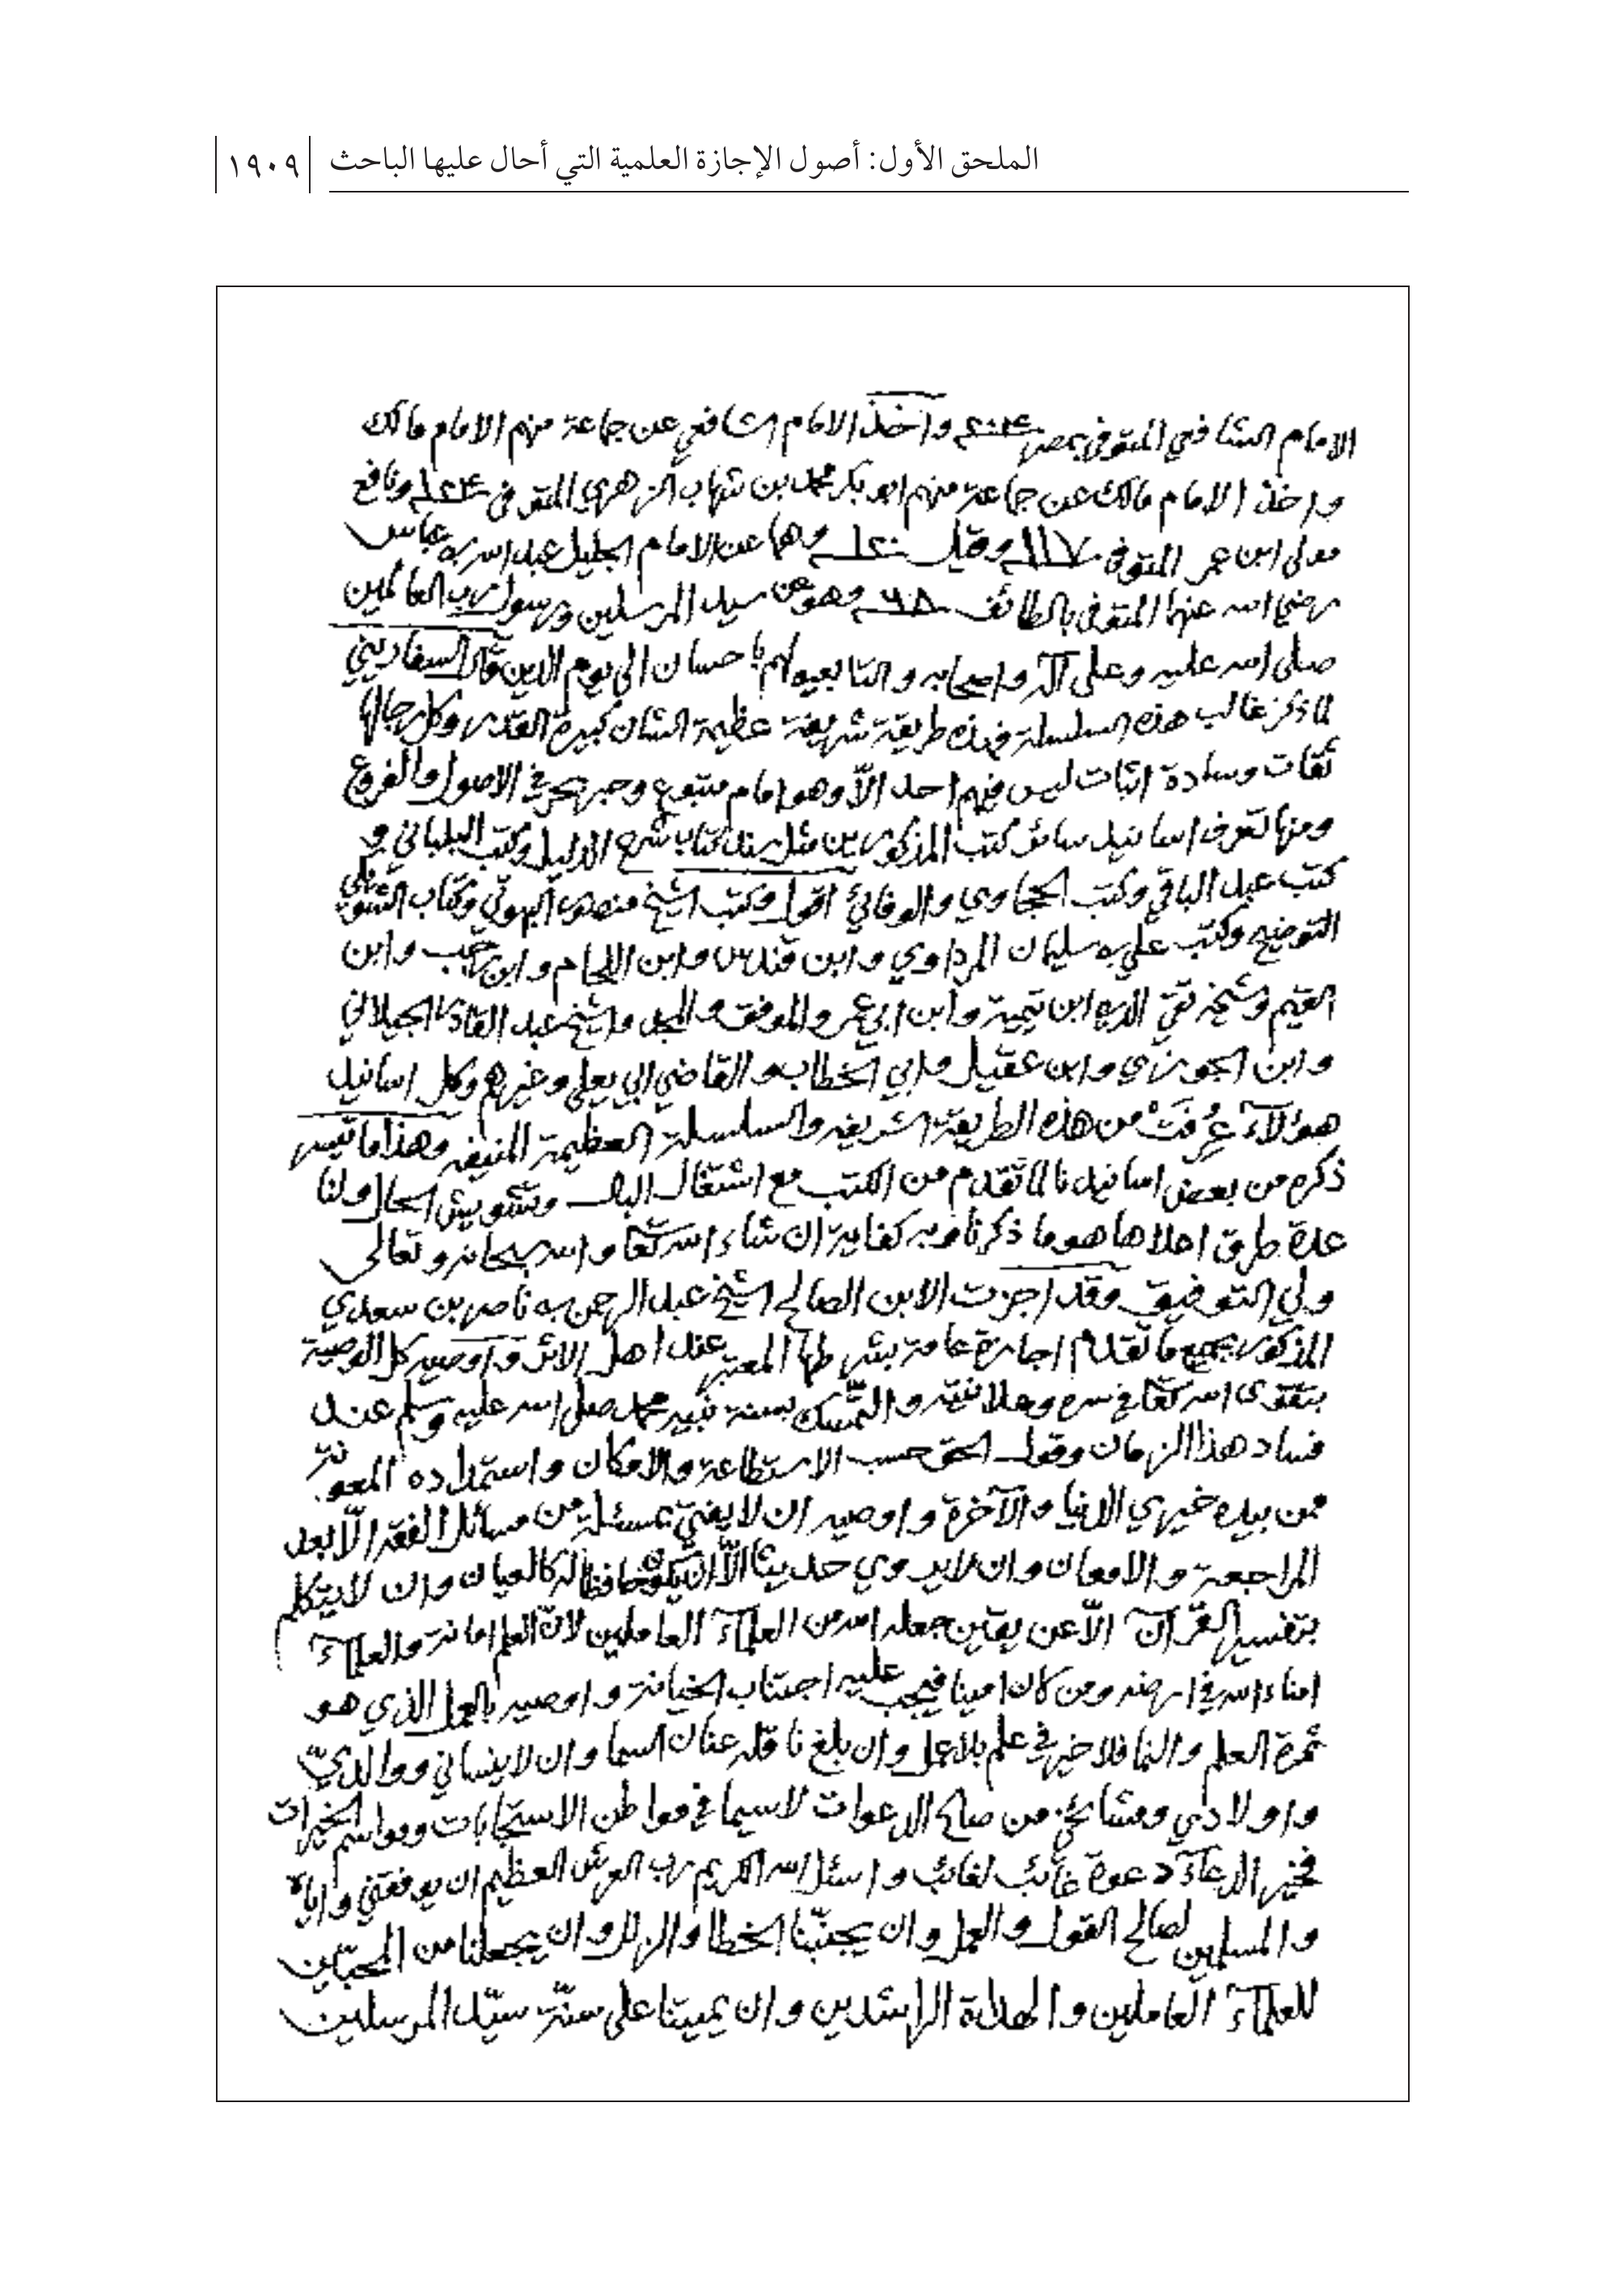 الملحق الأول: أصول الإجازة العلمية التي أحال عليها الباحث ١٩٠٩
الامام الشافعي المتوفى بمصر ٢٠٤ واخذ الامام الشافعي عن جماعة منهم الامام مالك
واخذ الامام مالك عن جماعة منهم ابو بكر محمد بن شهاب الزهري المتوفى ١٢٤ ونافع
مولى ابن عمر المتوفى ١١٧ وقيل ١٢٠ وهما عن الامام الجليل عبد الله بن عباس
رضي الله عنهما المتوفى بالطائف ٦٨ وهو عن سيد المرسلين ورسول رب العالمين
صلى الله عليه وعلى آله واصحابه والتابعين لهم باحسان الى يوم الدين قال السفاريني
لما ذكر غالب هذه السلسلة فهذه طريقة شريفة عظيمة الشان كبيرة القدر وكل رجالها
ثقات وسادة اثبات ليس فيهم احد الّا وهو امام متبوع وحبر بحر في الاصول والفروع
ومنها تعرف اسانيد سائر كتب المذكورين مثل سند كتاب شرح الدليل وكتب البلباني و
كتب عبد الباقي وكتب الحجاوي والوفائي اقول وكتب الشيخ منصور البهوتي وكتاب الشويكي
التوضيح وكتب علي بن سليمان المرداوي وابن قندس وابن اللحام وابن رجب وابن
القيم وشيخه تقي الدين ابن تيمية وابن ابي عمر والموفق والمجد والشيخ عبد القادر الجيلاني
وابن الجوزي وابن عقيل وابي الخطاب والقاضي ابي يعلى وغيرهم وكل اسانيد
هؤلآء عُرفَتْ من هذه الطريقة الشريفه والسلسلة العظيمة المنيفه وهذا ما تيسر
ذكره من بعض اسانيدنا لما تقدم من الكتب مع اشتغال البال وتشويش الحال ولنا
عدة طرق اعلاها هو ما ذكرنا وبه كفاية ان شاء الله تعا والله سبحانه وتعالى
ولي التوفيق وقد اجزت الابن الصالح الشيخ عبد الرحمن بن ناصر بن سعدي
المذكور بجميع ما تقدم اجازة عامة بشرطها المعتبر عند اهل الاثر واوصيه كل الوصية
بتقوى الله تعا في سره وعلانيته والتّمسك بسنة نبيه محمد صلى الله عليه وسلم عند
فساد هذا الزمان وقول الحق حسب الاستطاعة والامكان واستمداده المعونة
ممن بيده خيري الدنيا والآخرة واوصيه ان لا يفتي بمسئلة من مسائل الفقه الّا بعد
المراجعة والامعان وان لا يروي حديثا الّا ان يكون حافظا له كالعيان وان لا يتكلم
بتفسير القرآن الّا عن يقين جعله الله من العلمآء العاملين لانّ العلم امانة والعلمآء
امناء الله في ارضه ومن كان امينا فيجب عليه اجتناب الخيانة واوصيه بالعمل الذي هو
ثمرة العلم والنما فلا خير في علم بلا عمل وان بلغ ناقله عنان السما وان لا ينساني ووالديّ
واولادي ومشائخي من صالح الدعوات لاسيما في مواطن الاستجابات ومواسم الخيرات
فخير الدعآء دعوة غائب لغائب واسئل الله الكريم رب العرش العظيم ان يوفقني واياه
والمسلمين لصالح القول والعمل وان يجنّبنا الخطا والزلل وان يجعلنا من المحبّين
للعلمآء العاملين والهداة الراشدين وان يميتنا على سنّة سيّد المرسلين